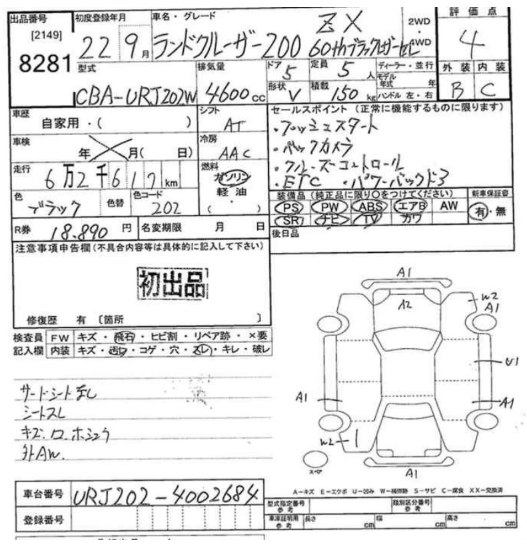 出品番号 初度登録年月 車名・グレード 評価点
[2149] 22 9月 ランドクルーザー200 ZX 60thブラックレザーSEL 2WD 4WD 4
8281 型式 排気量 ドア 5 定員 5人 ディーラー・並行 外装 内装
CBA-URJ202W 4600cc 形状 V 積載 150kg モデル年式 年 ハンドル 左・右 B C
車歴 自家用・( ) シフト AT セールスポイント(正常に機能するものに限ります)
・プッシュスタート
車検 年 月( 日) 冷房 AAC ・バックカメラ
・クルーズコントロール
走行 6万2千617km 燃料 ガソリン 軽油 ( ) ・ETC ・パワーバックドア
色 ブラック 色替 色コード 202 装備品(純正品に限り○をつけてください) 新車保証書
PS PW ABS エアB AW 有・無
SR ナビ TV カワ
R券 18,890円 名変期限 月 日 後日品
注意事項申告欄(不具合内容等は具体的に記入して下さい)
初出品
修復歴 有 〔箇所 〕
検査員 FW キズ・飛石・ヒビ割・リペア跡・×要
記入欄 内装 キズ・汚レ・コゲ・穴・スレ・キレ・破レ
A1
A2
W2
A1
U1
A1
A1
W2
A1
スペア
シートスレ
外AW.
A-キズ E-エクボ U-凹み W-補修跡 S-サビ C-腐食 XX-交換済
車台番号 URJ202-4002684 型式指定番号 参考 類別区分番号 参考
登録番号 車庫証明用 参考 長さ cm 幅 cm 高さ cm